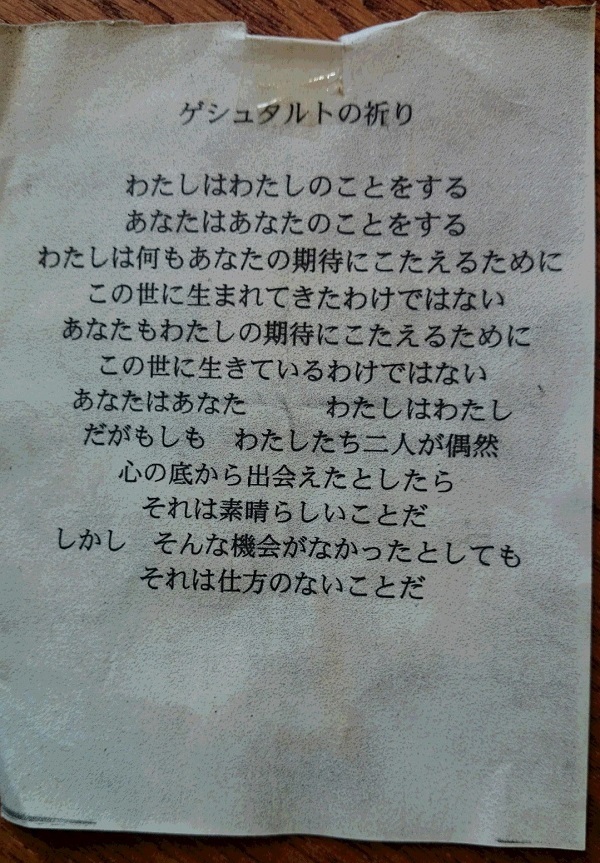 ゲシュタルトの祈り
わたしはわたしのことをする
あなたはあなたのことをする
わたしは何もあなたの期待にこたえるために
この世に生まれてきたわけではない
あなたもわたしの期待にこたえるために
この世に生きているわけではない
あなたはあなた　　　わたしはわたし
だがもしも　わたしたち二人が偶然
心の底から出会えたとしたら
それは素晴らしいことだ
しかし　そんな機会がなかったとしても
それは仕方のないことだ